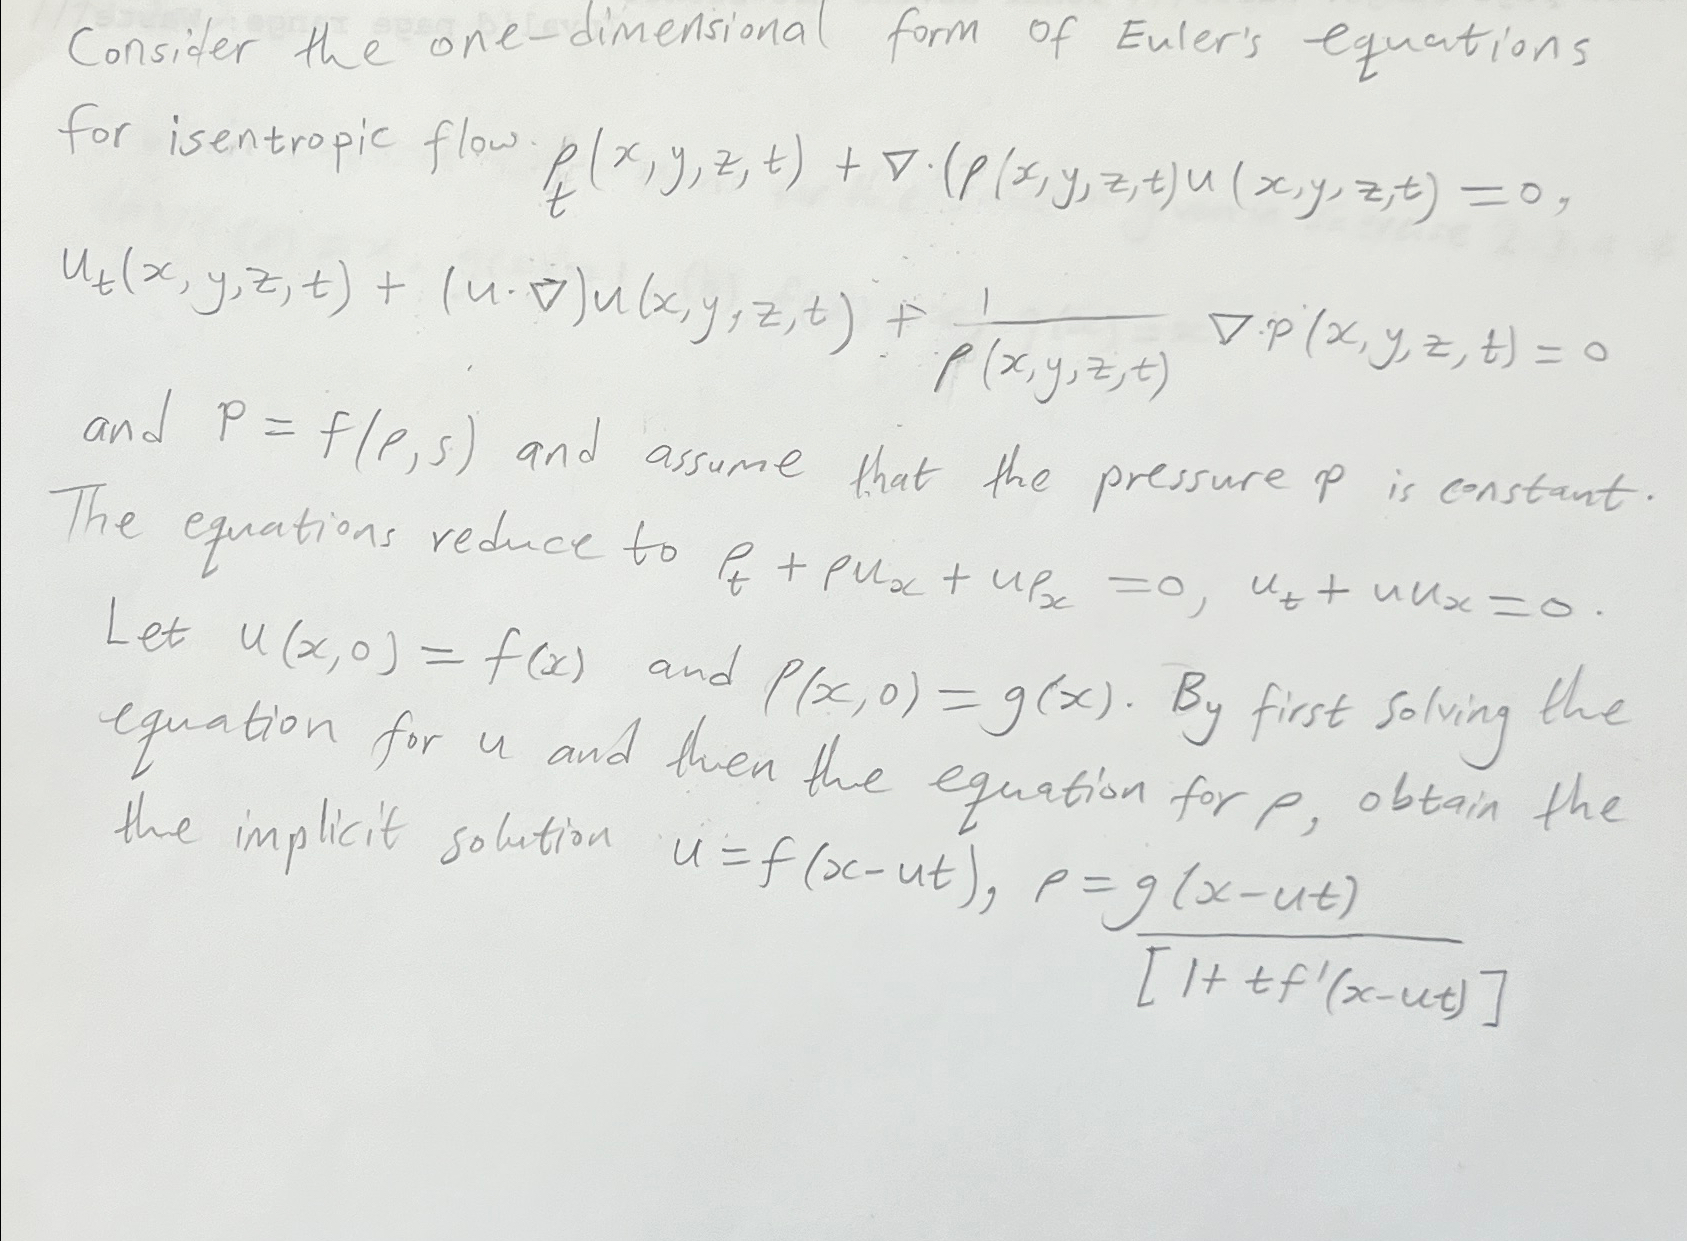 Consider the one-dimensional form of Euler's equations
for isentropic flow. ρ_t(x,y,z,t) + ∇·(ρ(x,y,z,t)u(x,y,z,t) = 0,
u_t(x,y,z,t) + (u·∇)u(x,y,z,t) + 1/ρ(x,y,z,t) ∇·p(x,y,z,t) = 0
and P = f(ρ,s) and assume that the pressure p is constant.
The equations reduce to ρ_t + ρu_x + uρ_x = 0, u_t + uu_x = 0.
Let u(x,0) = f(x) and ρ(x,0) = g(x). By first solving the
equation for u and then the equation for ρ, obtain the
the implicit solution u = f(x-ut), ρ = g(x-ut)/[1+ tf'(x-ut)]